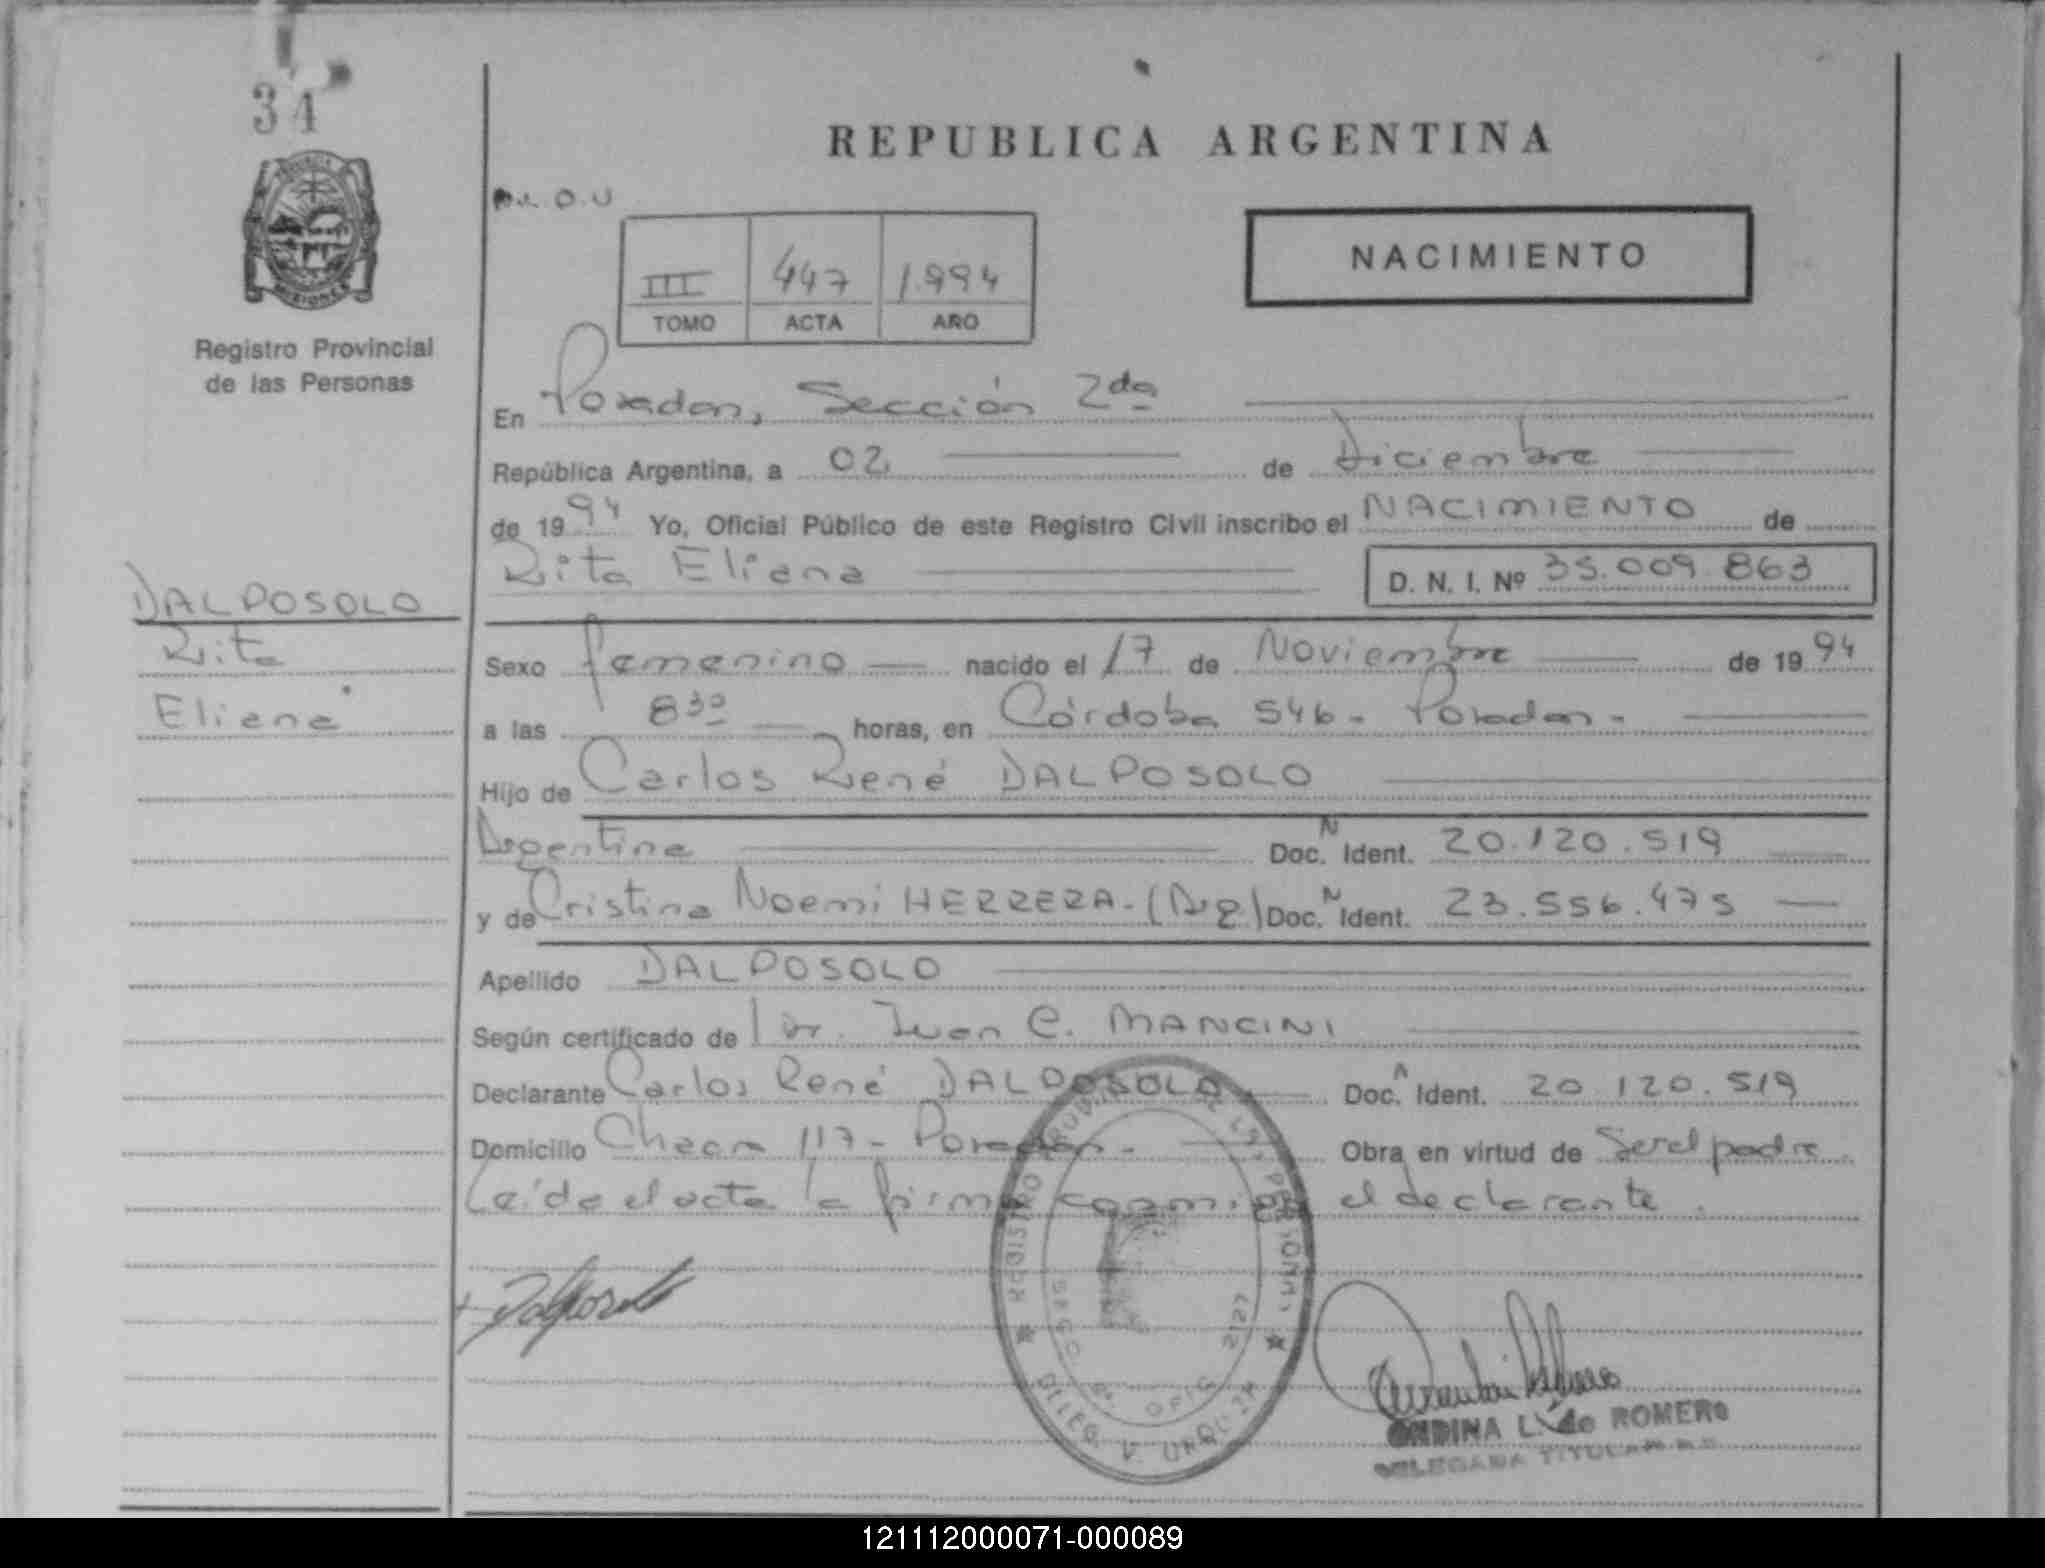 34
MISIONES
Registro Provincial
de las Personas
REPUBLICA ARGENTINA
III 447 1.994
TOMO ACTA AÑO
NACIMIENTO
En Posadas, Sección 2da
República Argentina, a 02 de Diciembre
de 1994 Yo, Oficial Público de este Registro Civil inscribo el NACIMIENTO de
Rita Eliana D. N. I. Nº 35.009.863
DALPOSOLO
Rita
Eliana
Sexo femenino nacido el 17 de Noviembre de 1994
a las 8 30 horas, en Córdoba 546 - Posadas -
Hijo de Carlos René DALPOSOLO
Argentina Doc. N Ident. 20.120.519
y de Cristina Noemi HERRERA - (Arg) Doc. N Ident. 23.556.475
Apellido DALPOSOLO
Según certificado de Dr. Juan C. MANCINI
Declarante Carlos René DALPOSOLO Doc. N Ident. 20.120.519
Domicilio 117 - Posadas - Obra en virtud de Ser el padre
Leída el acta la firma conmigo el declarante.
Dalposolo
REGISTRO PROVINCIAL DE LAS PERSONAS
DELEG. V. URQUIZA
OFIC 2127
ONDINA L. de ROMERO
DELEGADA TITULAR
121112000071-000089